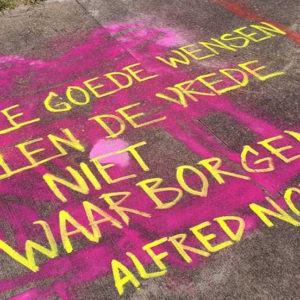 LE GOEDE WENSEN
LEN DE VREDE
NIET
WAARBORGE
ALFRED NO